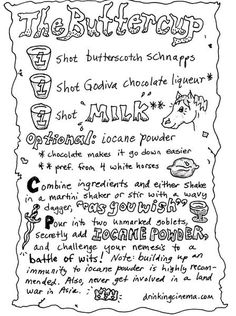 The Buttercup
1 shot butterscotch schnapps
1 shot Godiva chocolate liqueur*
1 shot "MILK"**
Optional: iocane powder
* chocolate makes it go down easier
** pref. from 4 white horses
Combine ingredients and either shake
in a martini shaker or stir with a wavy
dagger, "as you wish"
Pour into two unmarked goblets,
secretly add IOCANE POWDER,
and challenge your nemesis to a
battle of wits! Note: building up an
immunity to iocane powder is highly recom-
mended. Also, never get involved in a land
war in Asia.
drinkingcinema.com